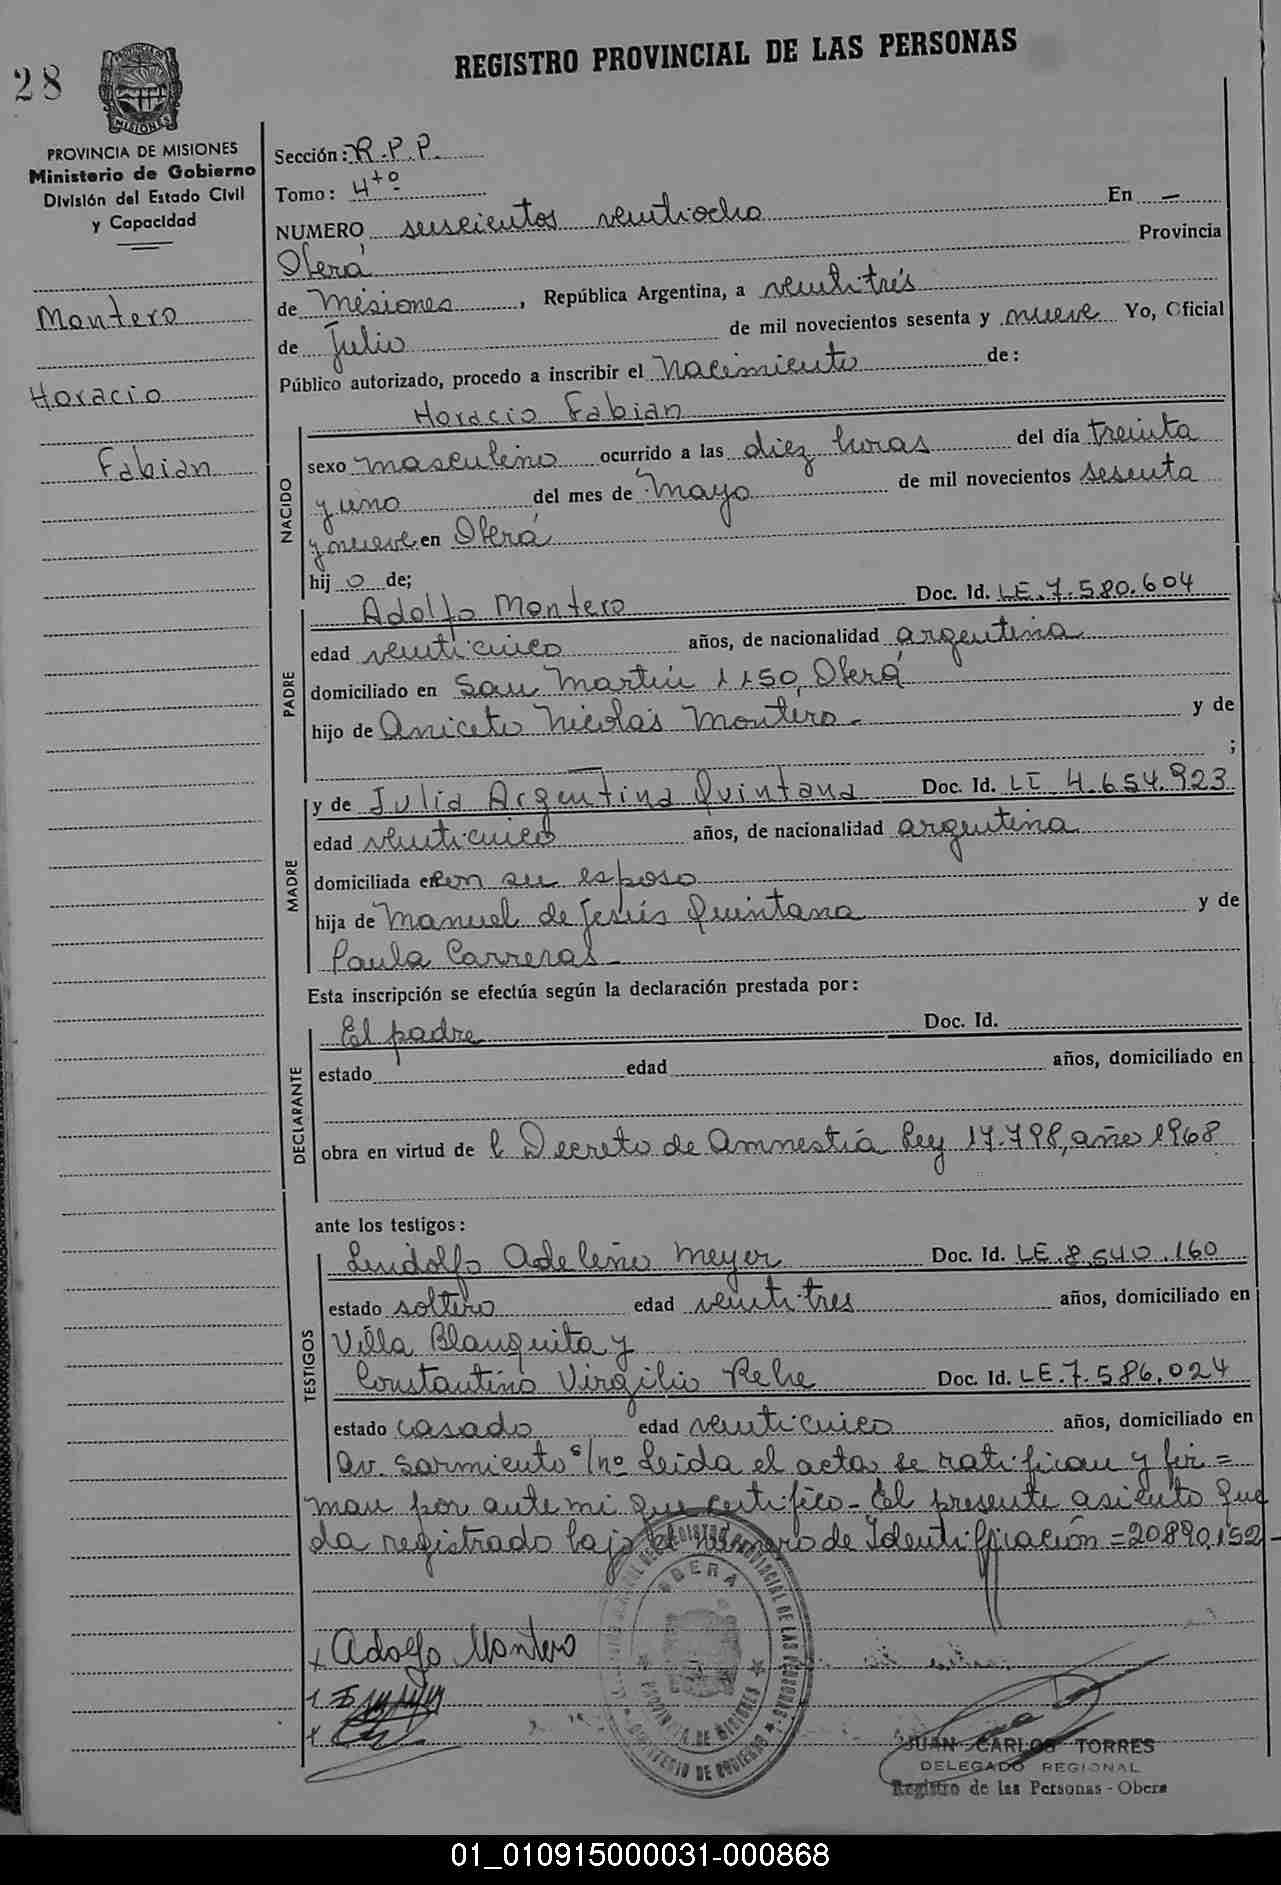 REGISTRO PROVINCIAL DE LAS PERSONAS
28
PROVINCIA DE MISIONES
PROVINCIA DE MISIONES
Ministerio de Gobierno
División del Estado Civil
y Capacidad
Montero
Horacio
Fabian
Sección: R.P.P.
Tomo: 4to
En —
NUMERO seiscientos veintiocho
Oberá Provincia
de Misiones, República Argentina, a veintitrés
de Julio de mil novecientos sesenta y nueve Yo, Oficial
Público autorizado, procedo a inscribir el Nacimiento de:
NACIDO
Horacio Fabian
sexo masculino ocurrido a las diez horas del día treinta
y uno del mes de Mayo de mil novecientos sesenta
y nueve en Oberá
hij o de;
PADRE
Adolfo Montero Doc. Id. LE.7.580.604
edad veinticinco años, de nacionalidad argentina
domiciliado en San Martin 1150, Oberá
hijo de Aniceto Nicolás Montero - y de
— ;
MADRE
y de Julia Argentina Quintana Doc. Id. LC 4.654.923
edad veinticinco años, de nacionalidad argentina
domiciliada en con su esposo
hija de Manuel de Jesús Quintana y de
Paula Carreras -
Esta inscripción se efectúa según la declaración prestada por:
DECLARANTE
El padre Doc. Id.
estado edad años, domiciliado en
obra en virtud de l Decreto de Amnestia Ley 17.798, año 1968
ante los testigos:
TESTIGOS
Lindolfo Adelino Meyer Doc. Id. LE.8.540.160
estado soltero edad veintitres años, domiciliado en
Villa Blanquita y
Constantino Virgilio Rehe Doc. Id. LE.7.586.024
estado casado edad veinticinco años, domiciliado en
Av. Sarmiento s/nº Leida el acta se ratifican y fir=
man por ante mi que certifico - El presente asiento que
da registrado bajo el Número de Identificación = 20.890.152 -
OBERA
PROVINCIA DE MISIONES
Adolfo Montero
JUAN CARLOS TORRES
DELEGADO REGIONAL
Registro de las Personas - Obera
01_010915000031-000868